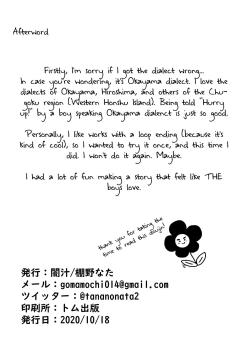 Afterword
Firstly, I'm sorry if I got the dialect wrong...
In case you're wondering, it's Okayama dialect. I love the
dialects of Okayama, Hiroshima, and others of the Chu-
goku region (Western Honshu Island). Being told "Hurry
up!" by a boy speaking Okayama dialect is just so good.
Personally, I like works with a loop ending (because it's
kind of cool), so I wanted to try it once, and this time I
did. I won't do it again. Maybe.
I had a lot of fun making a story that felt like THE
boys love.
thank you for taking the
time to read this doujin!
発行：闇汁/棚野なた
メール：gomamochi014@gmail.com
ツイッター：@tananonata2
印刷所：トム出版
発行日：2020/10/18